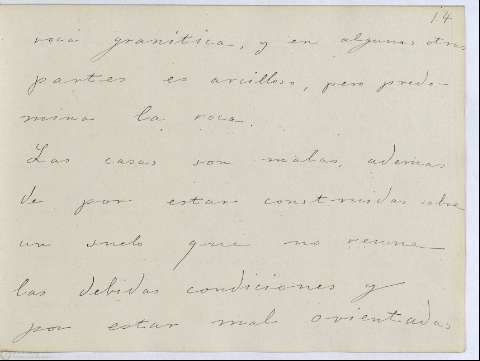 14
roca granítica, y en algunas otras
partes es arcilloso, pero predo-
mina la roca.
Las casas son malas, ademas
de por estar construidas sobre
un suelo que no reune
las debidas condiciones y
por estar mal orientadas